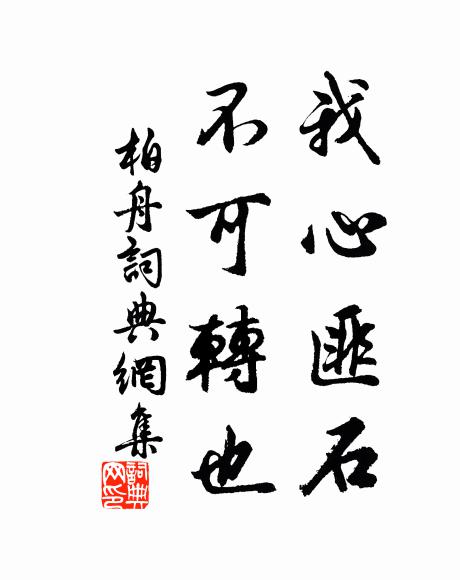 我心匪石
不可轉也
柏舟詞典網集
詞典网印